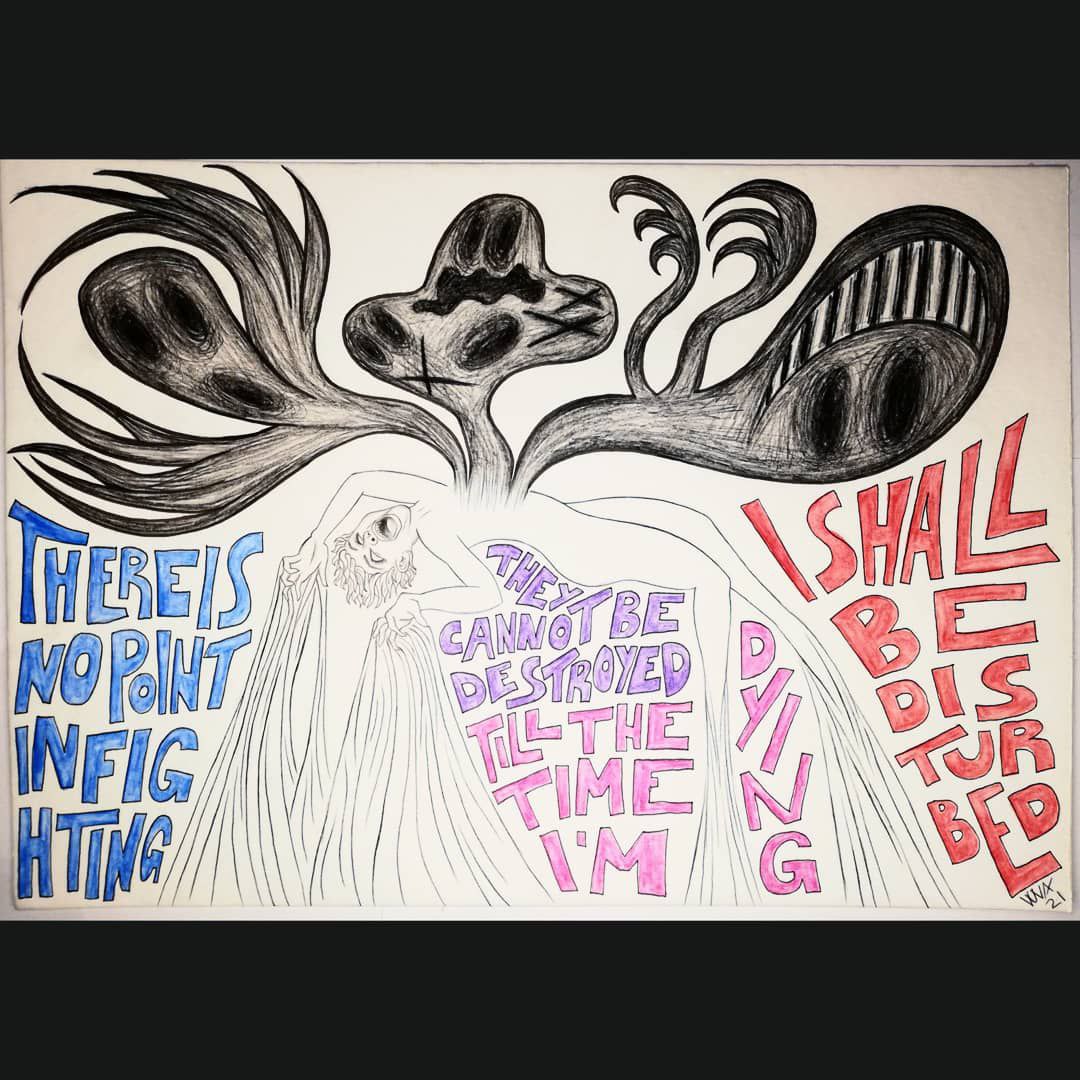 THERE IS
NO POINT
IN FIG
HTING
THEY
CANNOT BE
DESTROYED
TILL THE
TIME
I'M
DYING
I SHALL
BE
DIS
TUR
BED
21